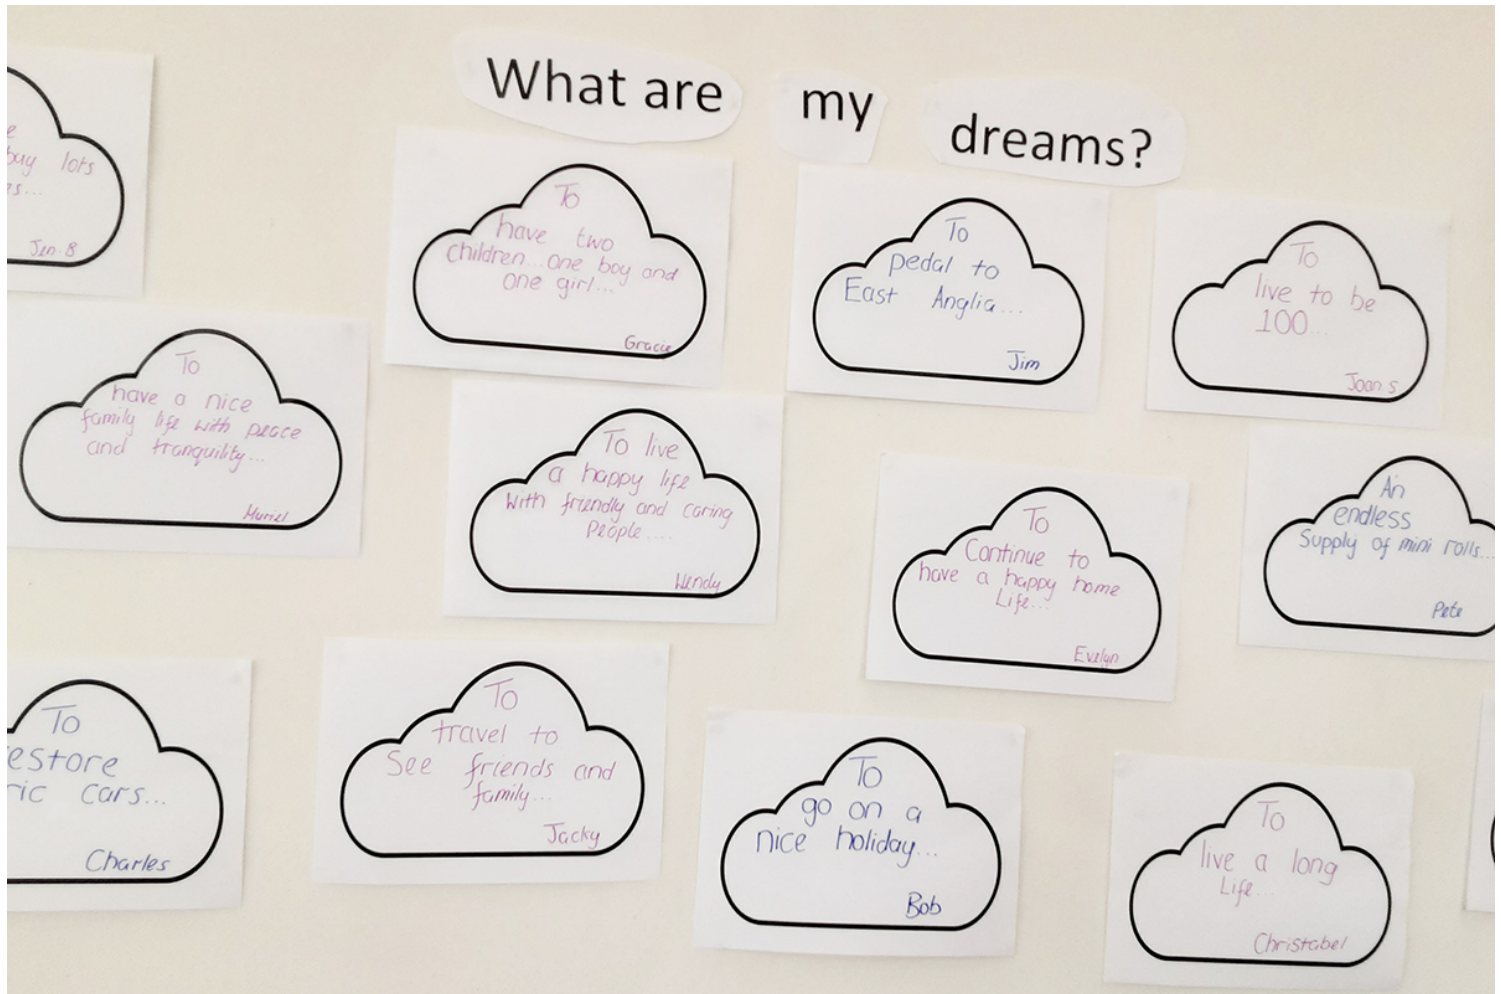 What are my dreams?
buy lots
Jen.B
To
have two
children...one boy and
one girl...
Gracie
To
pedal to
East Anglia...
Jim
To
live to be
100...
Joan.S
To
have a nice
family life with peace
and tranquility...
Muriel
To live
a happy life
with friendly and caring
People....
Wendy
To
Continue to
have a happy home
Life...
Evelyn
An
endless
Supply of mini rolls...
Pete
To
estore
ric cars...
Charles
To
travel to
See friends and
family...
Jacky
To
go on a
nice holiday...
Bob
To
live a long
Life...
Christabel